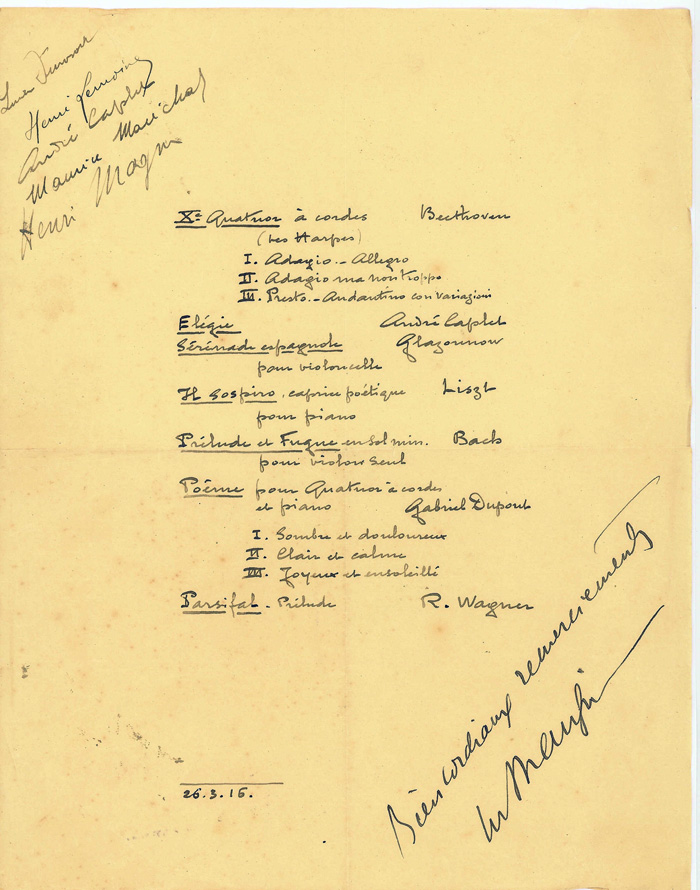 Henri Lemoine
André Caplet
Maurice Maréchal
Henri Magne
Xe Quatuor à cordes Beethoven
(Les Harpes)
I. Adagio. - Allegro
II. Adagio ma non troppo
III. Presto. - Andantino con variazioni
Elégie André Caplet
Sérénade espagnole Glazounow
pour violoncelle
Il Sospiro, caprice poétique Liszt
pour piano
Prélude et Fugue en sol min. Bach
pour violon seul
Poême pour Quatuor à cordes
et piano Gabriel Dupont
I. Sombre et douloureux
II. Clair et calme
III. Joyeux et ensoleillé
Parsifal - Prélude R. Wagner
Bien cordiaux remerciements
Mangin
26.3.16.